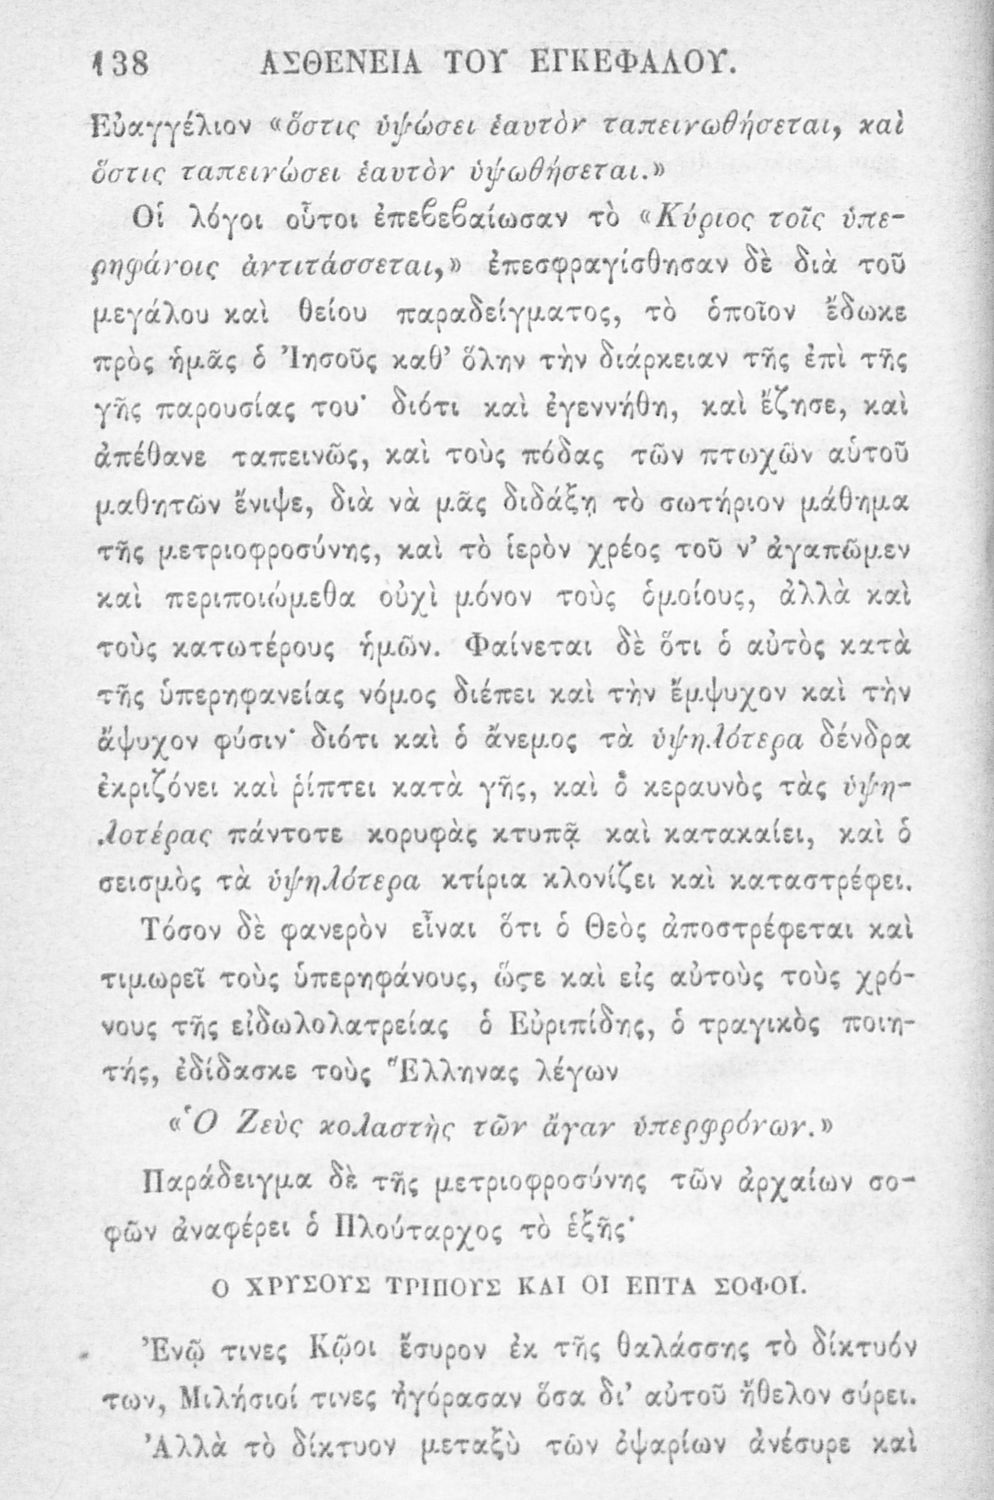 138 ΑΣΘΕΝΕΙΑ ΤΟΥ ΕΓΚΕΦΑΛΟΥ.
Εὐαγγέλιον «ὅστις ὑψώσει ἑαυτὸν ταπεινωθήσεται, καὶ
ὅστις ταπεινώσει ἑαυτὸν ὑψωθήσεται.»
Οἱ λόγοι οὗτοι ἐπεβεβαίωσαν τὸ «Κύριος τοῖς ὑπε-
ρηφάνοις ἀντιτάσσεται,» ἐπεσφραγίσθησαν δὲ διὰ τοῦ
μεγάλου καὶ θείου παραδείγματος, τὸ ὁποῖον ἔδωκε
πρὸς ἡμᾶς ὁ Ἰησοῦς καθ’ ὅλην τὴν διάρκειαν τῆς ἐπὶ τῆς
γῆς παρουσίας του· διότι καὶ ἐγεννήθη, καὶ ἔζησε, καὶ
ἀπέθανε ταπεινῶς, καὶ τοὺς πόδας τῶν πτωχῶν αὑτοῦ
μαθητῶν ἔνιψε, διὰ νὰ μᾶς διδάξῃ τὸ σωτήριον μάθημα
τῆς μετριοφροσύνης, καὶ τὸ ἱερὸν χρέος τοῦ ν’ ἀγαπῶμεν
καὶ περιποιώμεθα οὐχὶ μόνον τοὺς ὁμοίους, ἀλλὰ καὶ
τοὺς κατωτέρους ἡμῶν. Φαίνεται δὲ ὅτι ὁ αὐτὸς κατὰ
τῆς ὑπερηφανείας νόμος διέπει καὶ τὴν ἔμψυχον καὶ τὴν
ἄψυχον φύσιν· διότι καὶ ὁ ἄνεμος τὰ ὑψηλότερα δένδρα
ἐκριζόνει καὶ ῥίπτει κατὰ γῆς, καὶ ὁ κεραυνὸς τὰς ὑψη-
λοτέρας πάντοτε κορυφὰς κτυπᾷ καὶ κατακαίει, καὶ ὁ
σεισμὸς τὰ ὑψηλότερα κτίρια κλονίζει καὶ καταστρέφει.
Τόσον δὲ φανερὸν εἶναι ὅτι ὁ Θεὸς ἀποστρέφεται καὶ
τιμωρεῖ τοὺς ὑπερηφάνους, ὥςε καὶ εἰς αὐτοὺς τοὺς χρό-
νους τῆς εἰδωλολατρείας ὁ Εὐριπίδης, ὁ τραγικὸς ποιη-
τής, ἐδίδασκε τοὺς Ἕλληνας λέγων
«Ὁ Ζεὺς κολαστὴς τῶν ἄγαν ὑπερφρόνων.»
Παράδειγμα δὲ τῆς μετριοφροσύνης τῶν ἀρχαίων σο-
φῶν ἀναφέρει ὁ Πλούταρχος τὸ ἑξῆς·
Ο ΧΡΥΣΟΥΣ ΤΡΙΠΟΥΣ ΚΑΙ ΟΙ ΕΠΤΑ ΣΟΦΟΙ.
Ἐνῷ τινες Κῷοι ἔσυρον ἐκ τῆς θαλάσσης τὸ δίκτυόν
των, Μιλήσιοί τινες ἠγόρασαν ὅσα δι’ αὐτοῦ ἤθελον σύρει.
Ἀλλὰ τὸ δίκτυον μεταξὺ τῶν ὀψαρίων ἀνέσυρε καὶ